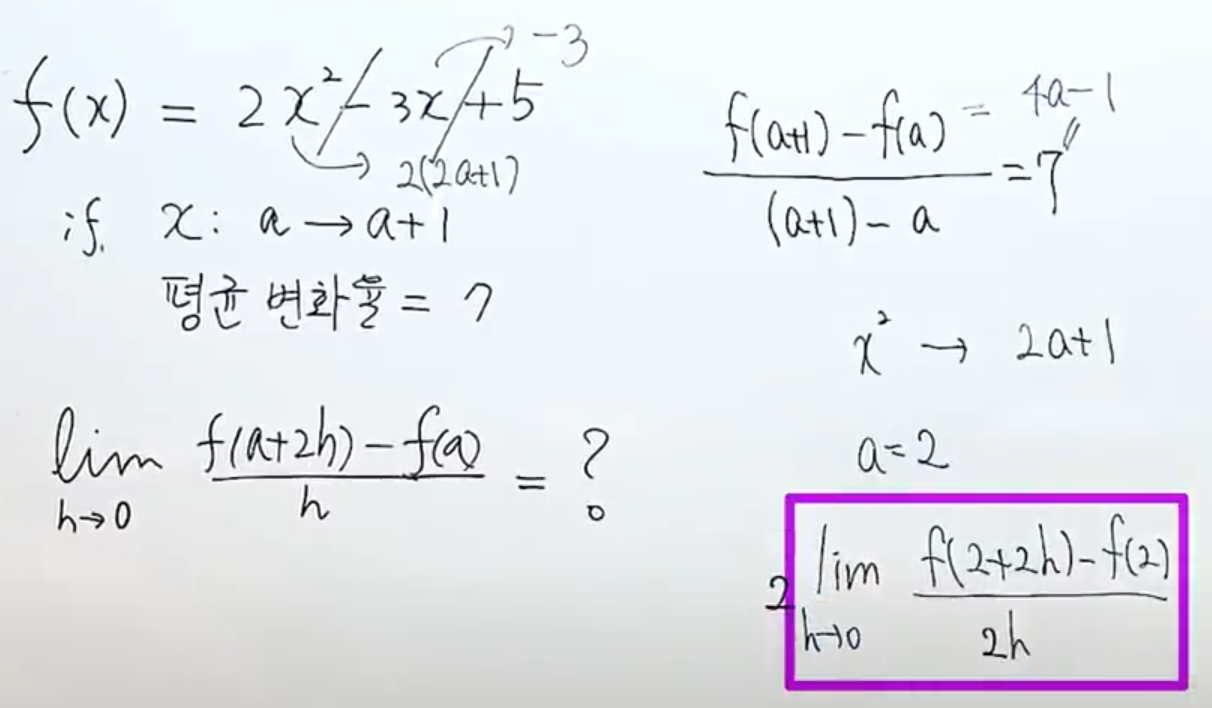 f(x) = 2x² - 3x + 5
-3
2(2a+1)
if. x: a → a+1
평균 변화율 = 7
lim h→0 f(a+2h) - f(a) / h = ?
f(a+1) - f(a) / (a+1) - a = 7
= 4a-1
x² → 2a+1
a=2
2 lim h→0 f(2+2h) - f(2) / 2h